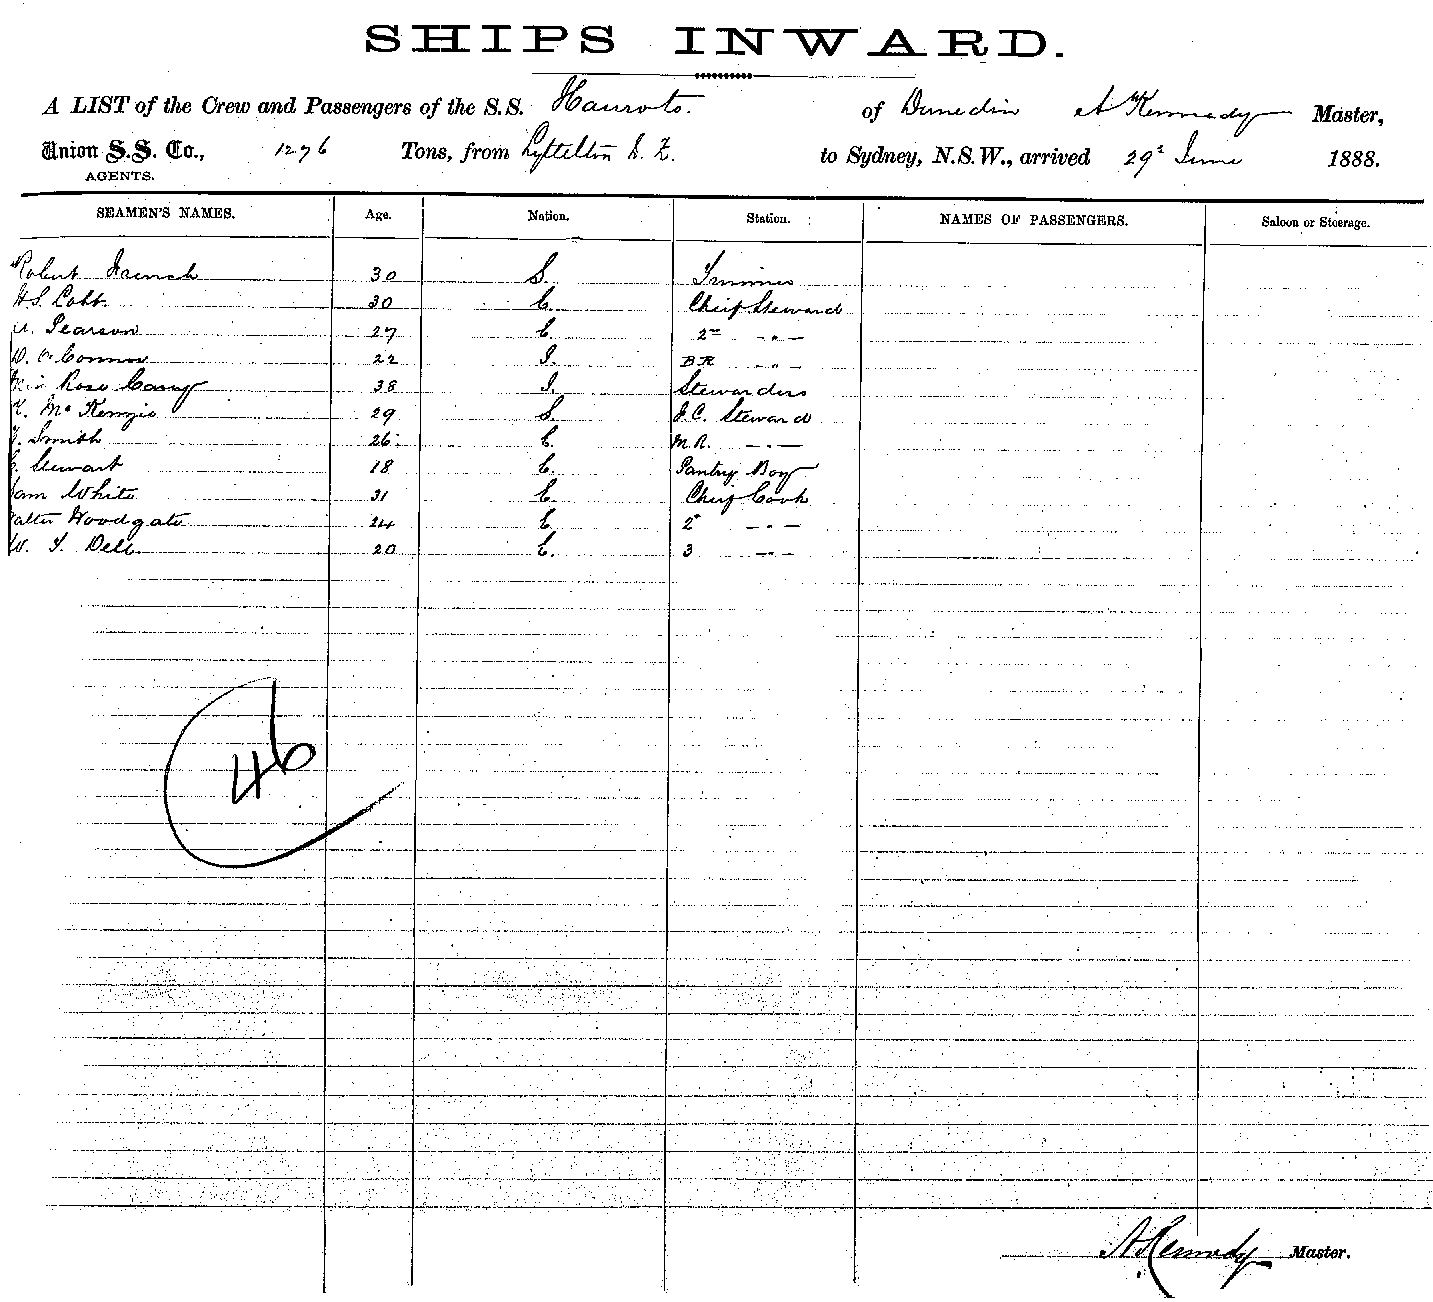 SHIPS INWARD.
A LIST of the Crew and Passengers of the S.S. Hauroto. of Dunedin A Kennedy Master,
Union S.S. Co., 1276 Tons, from Lyttelton N. Z. to Sydney, N.S.W., arrived 29th June 1888.
AGENTS.
SEAMEN'S NAMES. Age. Nation. Station. NAMES OF PASSENGERS. Saloon or Steerage.
Robert French 30 S. Trimmer
H.S. Cobb 30 E. Cheif Steward
Pearson 27 E. 2nd -"-
D. O'Connor 22 I. BR -"-
Rose Carey 38 I. Stewardess
K. McKenzie 29 S. F.C. Steward
Smith 26 E. M.R. -"-
Stewart 18 E. Pantry Boy
Sam White 31 E. Cheif Cook
Walter Woodgate 24 E. 2nd -"-
W. Dell 20 E. 3 -"-
46
A Kennedy Master.